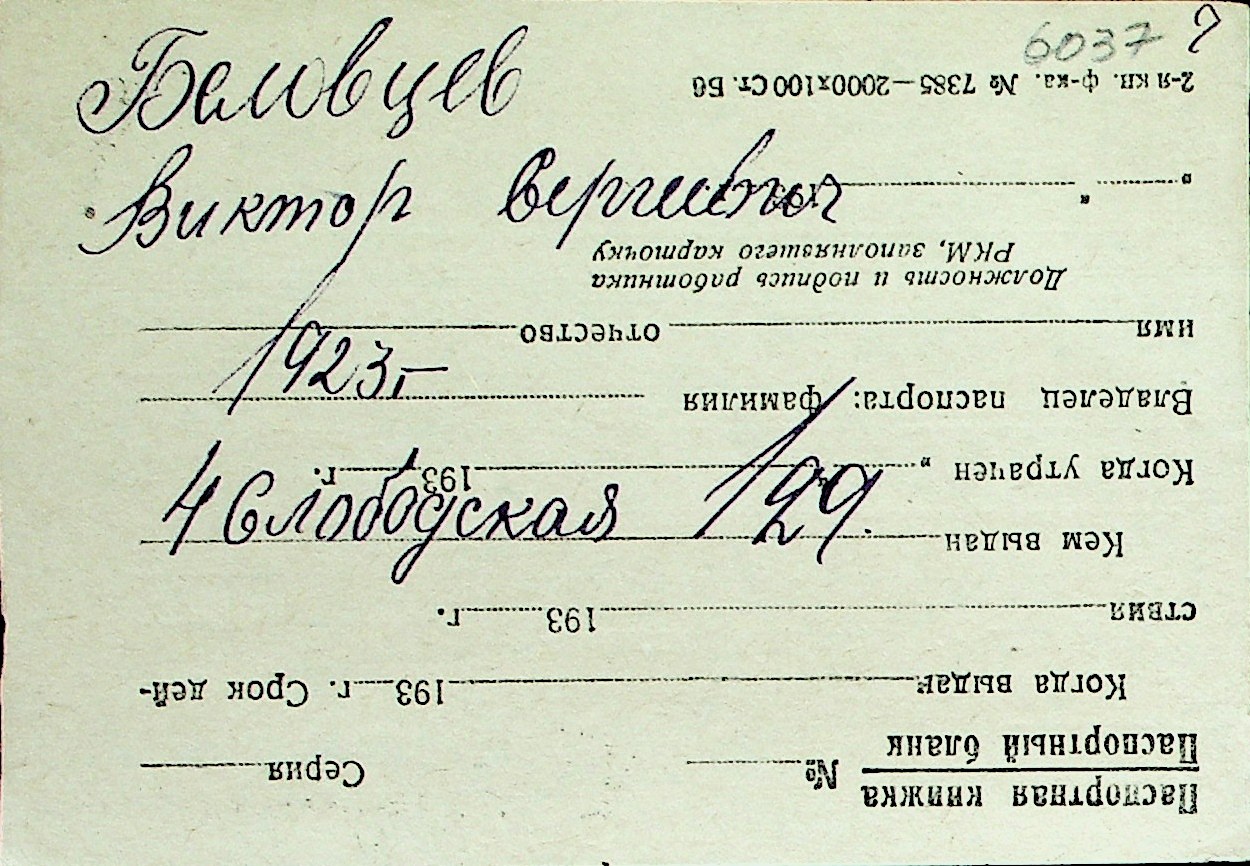 6037
Беловцев
Виктор Сергеевич
1923г
4 Слободская 129.
Паспортная книжка
Паспортный бланк
№ Серия
Когда выдан 193 г. Срок дей-
ствия 193 г.
Кем выдан
Когда утрачен „ " 193 г.
Владелец паспорта: фамилия
имя отчество
Должность и подпись работника
РКМ, заполнявшего карточку
2-я кн. ф-ка. № 7385—2000х100 Ст. Бб